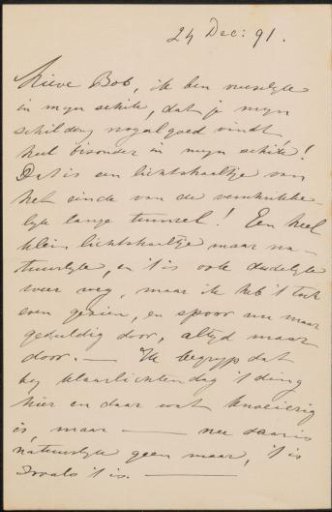 24 Dec: 91.
Lieve Bob, ik ben vreeslijk
in mijn schik, dat je mijn
schilderij nogal goed vindt
heel bizonder in mijn schik!
Dat is een lichtstraaltje van
het einde van de verschrikke-
lijk lange tunnel! Een heel
klein lichtstraaltje maar na-
tuurlijk, en 't is ook dadelijk
weer weg, maar ik heb 't toch
even gezien, en spoor nu maar
geduldig door, altijd maar
door. — Ik begrijp dat
bij klaarlichten dag 't ding
hier en daar wat knoeierig
is, maar — nu daar is
natuurlijk geen maar, 't is
zooals 't is. —